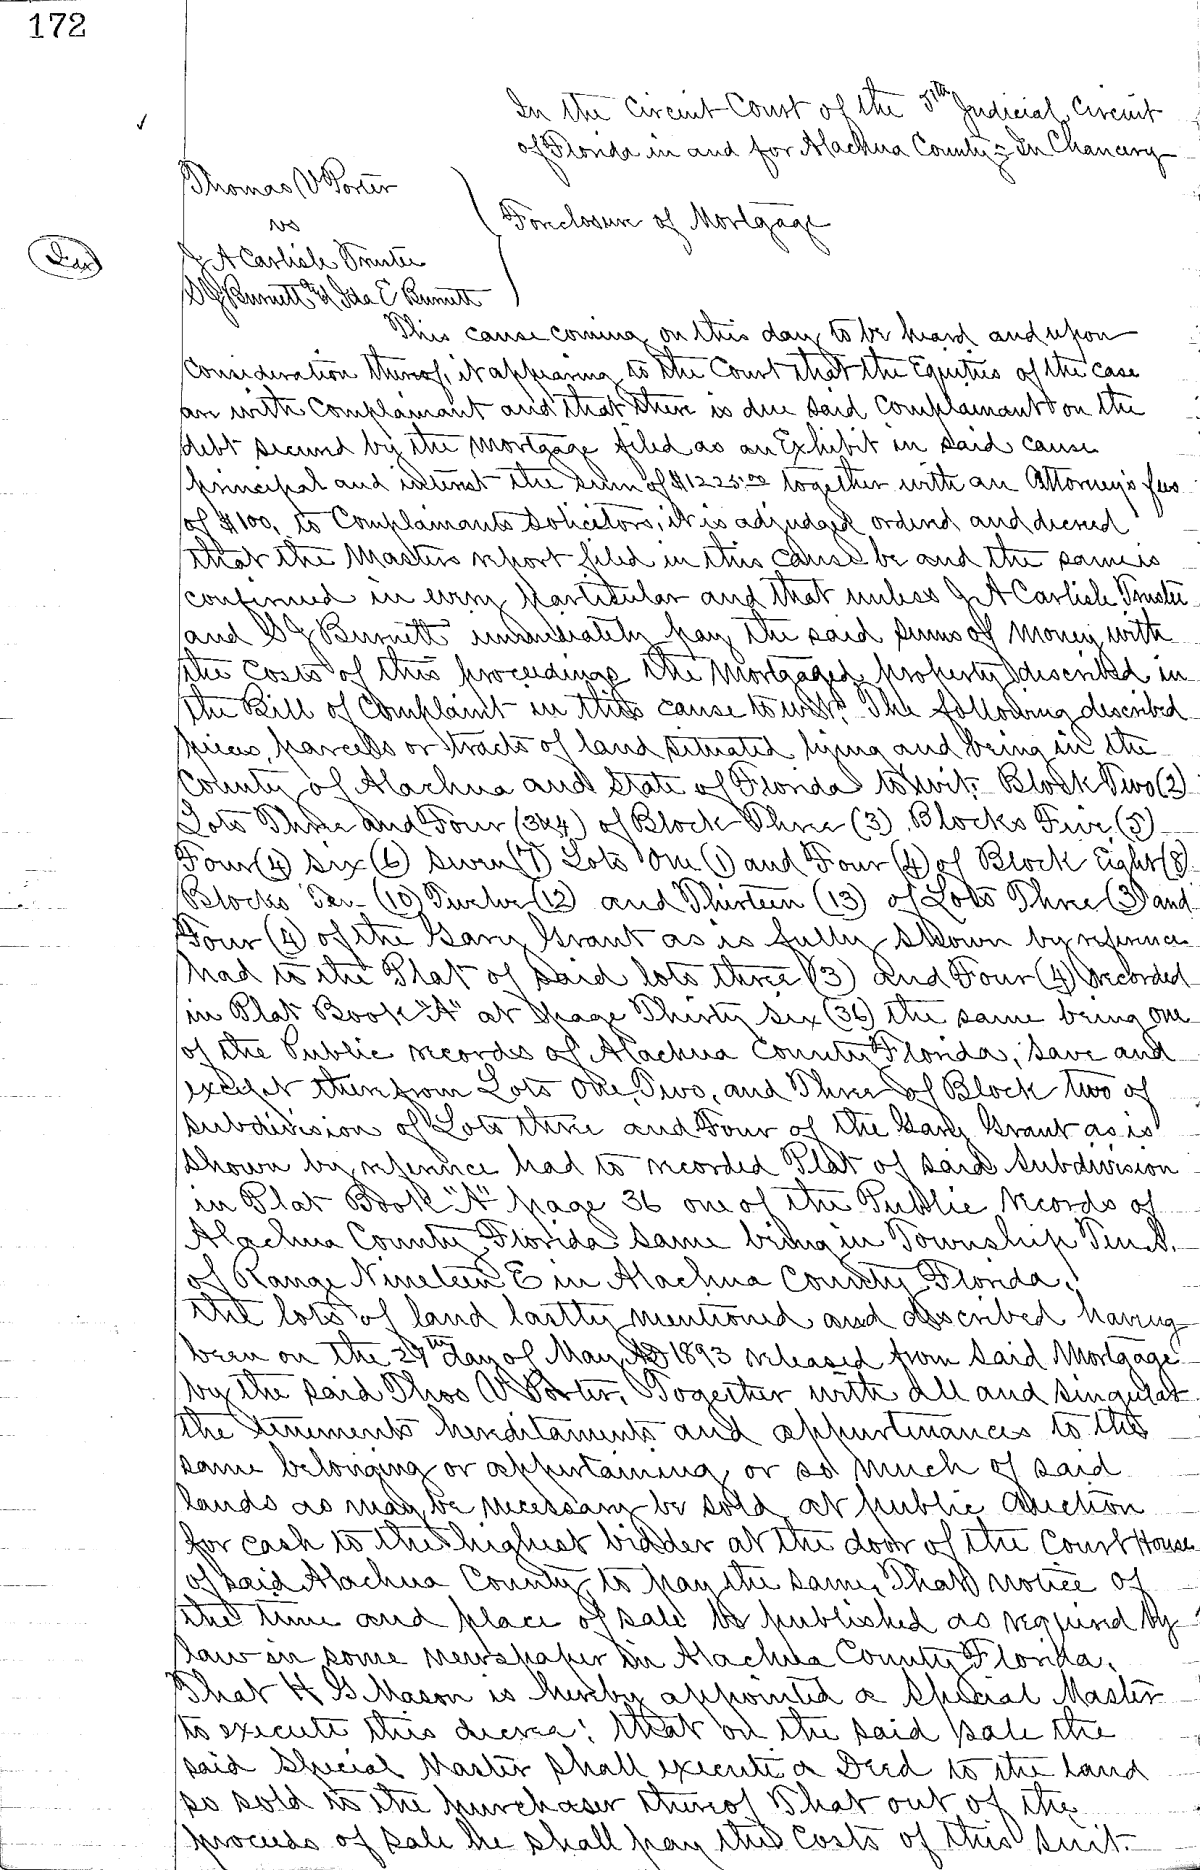 172
In the Circuit Court of the 5th Judicial Circuit
of Florida in and for Alachua County = In Chancery
Thomas V Porter
vs
Foreclosure of Mortgage
J A Carlisle Trustee
S J Burnett & Ida E Burnett
This cause coming on this day to be heard and upon
Consideration thereof, it appearing to the Court that the Equities of the case
are with Complainant and that there is due said Complainant on the
debt secured by the Mortgage filed as an Exhibit in said cause
principal and interest the sum of $1225.00 together with an Attorney's fees
of $100, to Complainants Solicitors, it is adjudged ordered and decreed
that the Masters report filed in this cause be and the same is
confirmed in every particular and that unless J A Carlisle Trustee
and S J Burnett immediately pay the said sums of money with
the costs of this proceedings the Mortgaged property described in
the Bill of Complaint in this cause to wit: The following described
pieces, parcels or tracts of land situated lying and being in the
County of Alachua and State of Florida to wit: Block Two (2)
Lots Three and Four (3&4) of Block Three (3) Blocks Five (5)
Four (4) Six (6) Seven (7) Lots One (1) and Four (4) of Block Eight (8)
Blocks Ten (10) Twelve (12) and Thirteen (13) of Lots Three (3) and
Four (4) of the Gary Grant as is fully shown by reference
had to the Plat of said lots three (3) and Four (4) recorded
in Plat Book "A" at page Thirty six (36) the same being one
of the Public records of Alachua County Florida, save and
except therefrom Lots One, Two, and Three of Block two of
subdivision of Lots three and Four of the Gary Grant as is
shown by reference had to recorded Plat of said subdivision
in Plat Book "A" page 36 one of the Public records of
Alachua County, Florida same being in Township Ten S.
of Range Nineteen E in Alachua County Florida,
the lots of land lastly mentioned and described having
been on the 27th day of May AD 1893 released from said Mortgage
by the said Thos V Porter, Together with all and singular
the tenements hereditaments and appurtenances to the
same belonging or appertaining, or so much of said
lands as may be necessary be sold at public Auction
for cash to the highest bidder at the door of the Court House
of said Alachua County to pay the same, That notice of
the time and place of sale be published as required by
law in some newspaper in Alachua County Florida,
That H G Mason is hereby appointed a Special Master
to execute this decree; that on the said sale the
said Special Master shall execute a Deed to the land
so sold to the purchaser thereof That out of the
proceeds of sale he shall pay the costs of this suit.